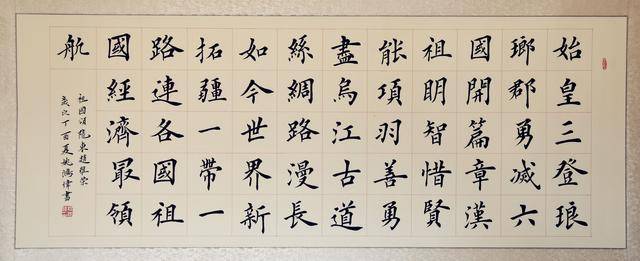 始皇三登琅
瑯郡勇滅六
國開篇章漢
祖明智惜賢
能項羽善勇
盡烏江古道
絲綢路漫長
如今世界新
拓疆一帶一
路連各國祖
國經濟最領
航
祖國頌
歲次丁酉夏姚鴻偉書